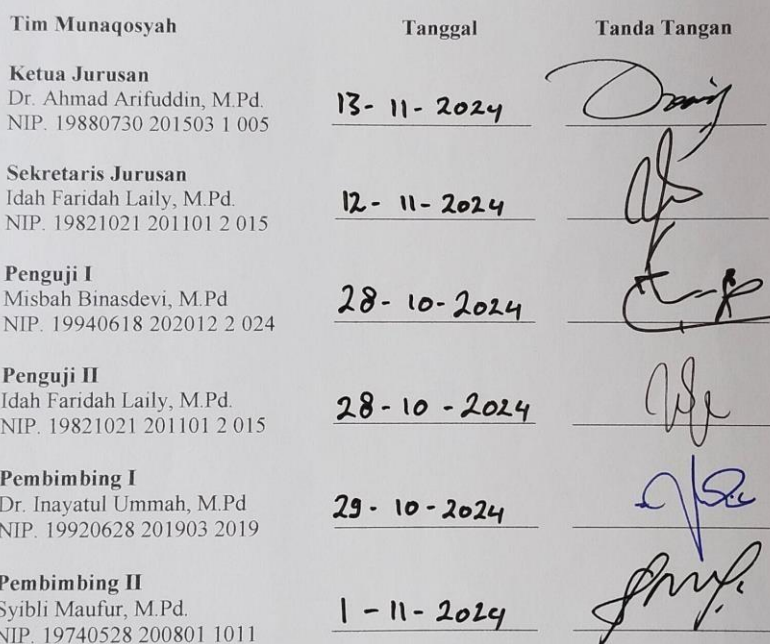 Tim Munaqosyah Tanggal Tanda Tangan
Ketua Jurusan
Dr. Ahmad Arifuddin, M.Pd.
NIP. 19880730 201503 1 005
13- 11- 2024
Sekretaris Jurusan
Idah Faridah Laily, M.Pd.
NIP. 19821021 201101 2 015
12- 11- 2024
Penguji I
Misbah Binasdevi, M.Pd
NIP. 19940618 202012 2 024
28- 10- 2024
Penguji II
Idah Faridah Laily, M.Pd.
NIP. 19821021 201101 2 015
28-10 -2024
Pembimbing I
Dr. Inayatul Ummah, M.Pd
NIP. 19920628 201903 2019
29- 10-2024
Pembimbing II
Syibli Maufur, M.Pd.
NIP. 19740528 200801 1011
1 -11- 2024